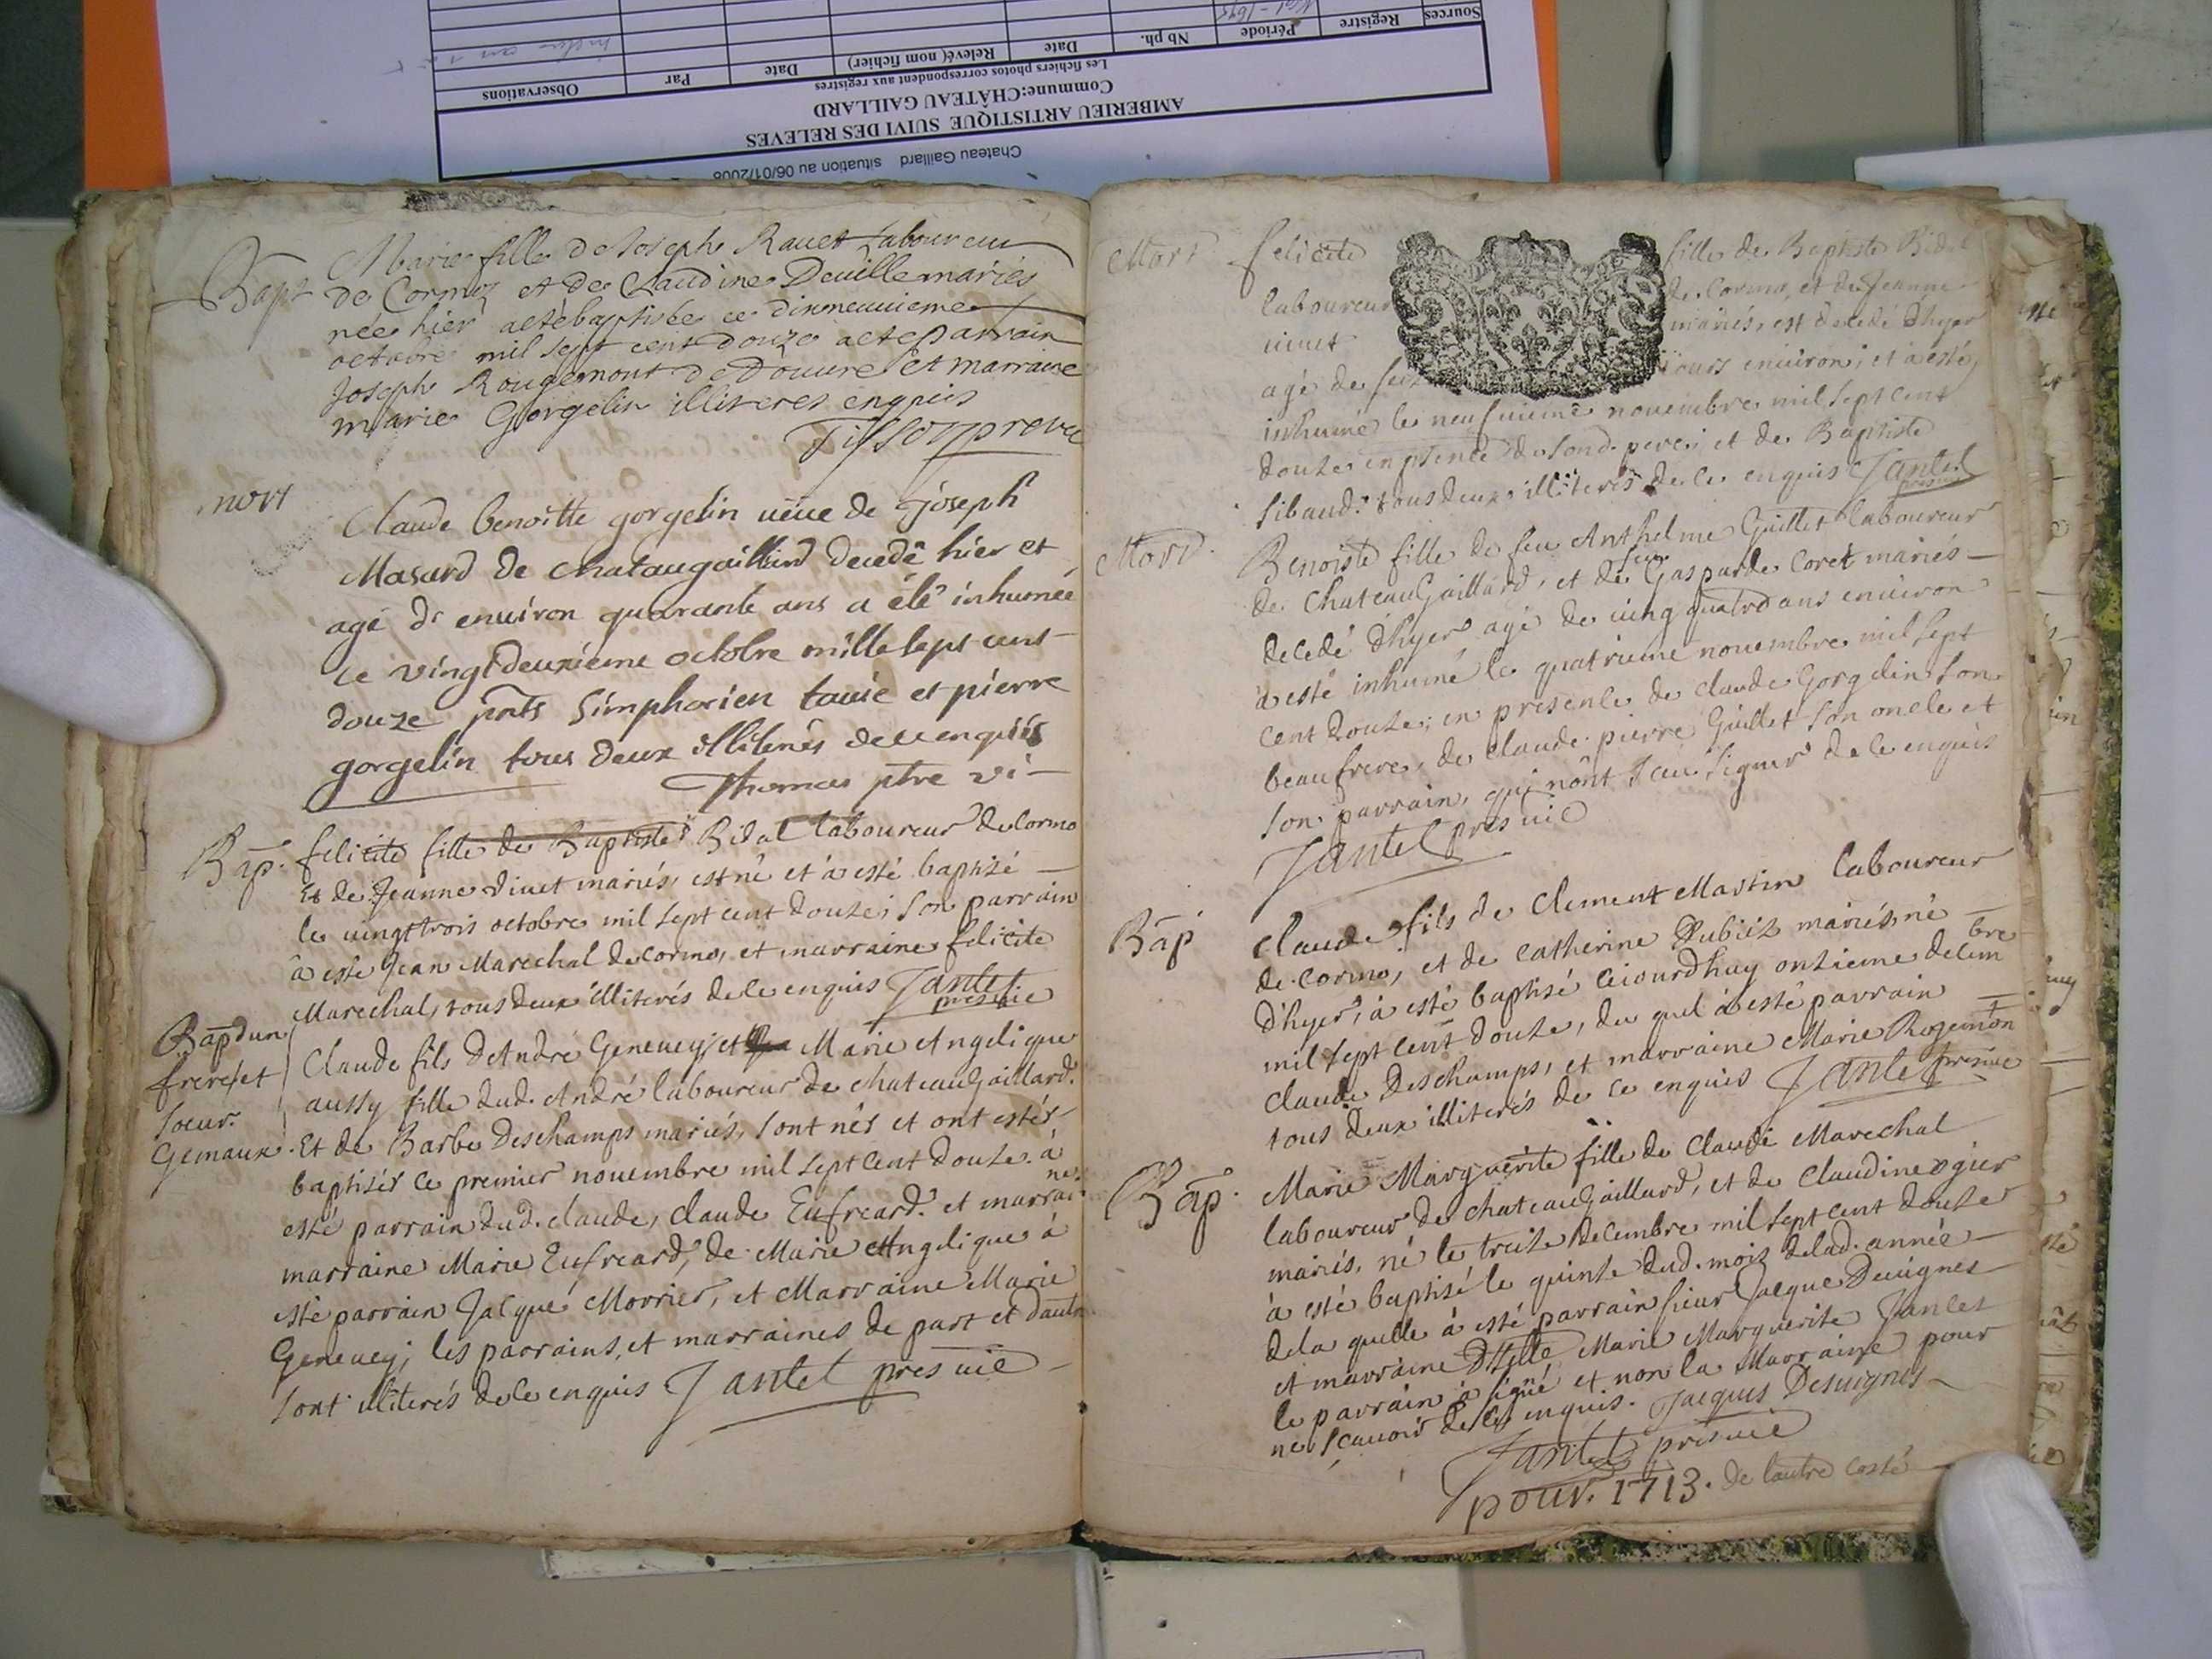 Chateau Gaillard situation au 06/01/2008
AMBERIEU ARTISTIQUE SUIVI DES RELEVES
Commune:CHÂTEAU GAILLARD
Les fichiers photos correspondent aux registres
Sources Registre Période Nb ph. Date Relevé( nom fichier) Date Par Observations
Bapt
Marie fille de Joseph Rauet Laboureur
de Cormoz et de Claudine Deuille mariés
née hier aetébaptisée ce dixneuuieme
octobre mil sept cent douze aeteparrain
Joseph Rougemont de Douure et marraine
marie Gorgelin illiteres enquis
Tissot
mort
Claude benoitte gorgelin ueue de Joseph
Masard de chataugaillard decedê hier et
agé d'enuiron quarante ans a été inhumée
ce vingtdeuxieme octobre mille sept cens
douze pnts Simphorien tauie et pierre
gorgelin tous deux illiterés dece enquis
Thomas ptre vi
Bap.
felicite fille de Baptiste Bidal laboureur de Cormo
Et de Jeanne diuet mariés, est né et à esté baptisé
le uingttrois octobre mil sept cent douze, son parrain
à esté Jean Marechal de cormo, et marraine felicite
Marechal, tous deux illiterés de ce enquis Jantet
pres uié
Bap dun
frere et
soeur
Gemaux.
Claude fils dAndré Geneuey, et Marie Angelique
aussy fille dud. André laboureur de chateauGaillard.
Et de Barbe Deschamps mariés, sont nés et ont estés
baptisés ce premier nouembre mil sept cent douze. à
esté parrain dud. claude, claude Eufreard. et marrai
ne
marraine Marie Eufreard, de Marie Angelique à
esté parrain Jacque Morrier, et Marraine Marie
Geneuey; les parrains, et marraines de part et dautre
sont illiterés de ce enquis Jantet pres uié
Mort
felicite fille de Baptiste Bidal
laboureur de Cormo, et de Jeanne
iuuet mariés, est decedé d'hyer
agé de seize jours enuiron, et à esté
inhumé le neufuieme nouembre mil sept cent
douze en psence de son d. pere, et de Baptiste
Sibaud. tous deux illiterés de ce enquis Jantet
pres uié
Mort.
Benoiste fille de feu Anthelme Guillet laboureur
de ChateauGaillard, et de feue Gasparde Coret mariés
decedé d'hyer agé de uing quatre ans enuiron
à esté inhumé le quatrieme nouembre mil sept
cent douze; en presence de claude Gorgelin son
beaufrere, de claude pierre Guillet son oncle et
son parrain, qui nont sceu signer de ce enquis
Jantet pres uié
Bap
Claude fils de Clement Martin laboureur
de cormo, et de catherine Dubiez mariés, né
d'hyer, à esté baptisé ceiourdhuy onzieme decem
bre
mil sept cent douze, du quel à esté parrain
claude Deschamps, et marraine Marie Rogemon
t
tous deux illiterés de ce enquis Jantet pres uié
Bap.
Marie Marguerite fille de Claude Marechal
laboureur de chateauGaillard, et de Claudine ogier
mariés, né le treize decembre mil sept cent douze
à esté baptisé le quinze dud. mois delad. année
dela quelle à esté parrain sieur Jacque Deuignes
et marraine Dlle Marie Marguerite Jantet
le parrain à signé et non la Marraine pour
ne scauoir de ce enquis. Jacques Desuignes
Jantet pres uié
pour. 1713. de lautre costé